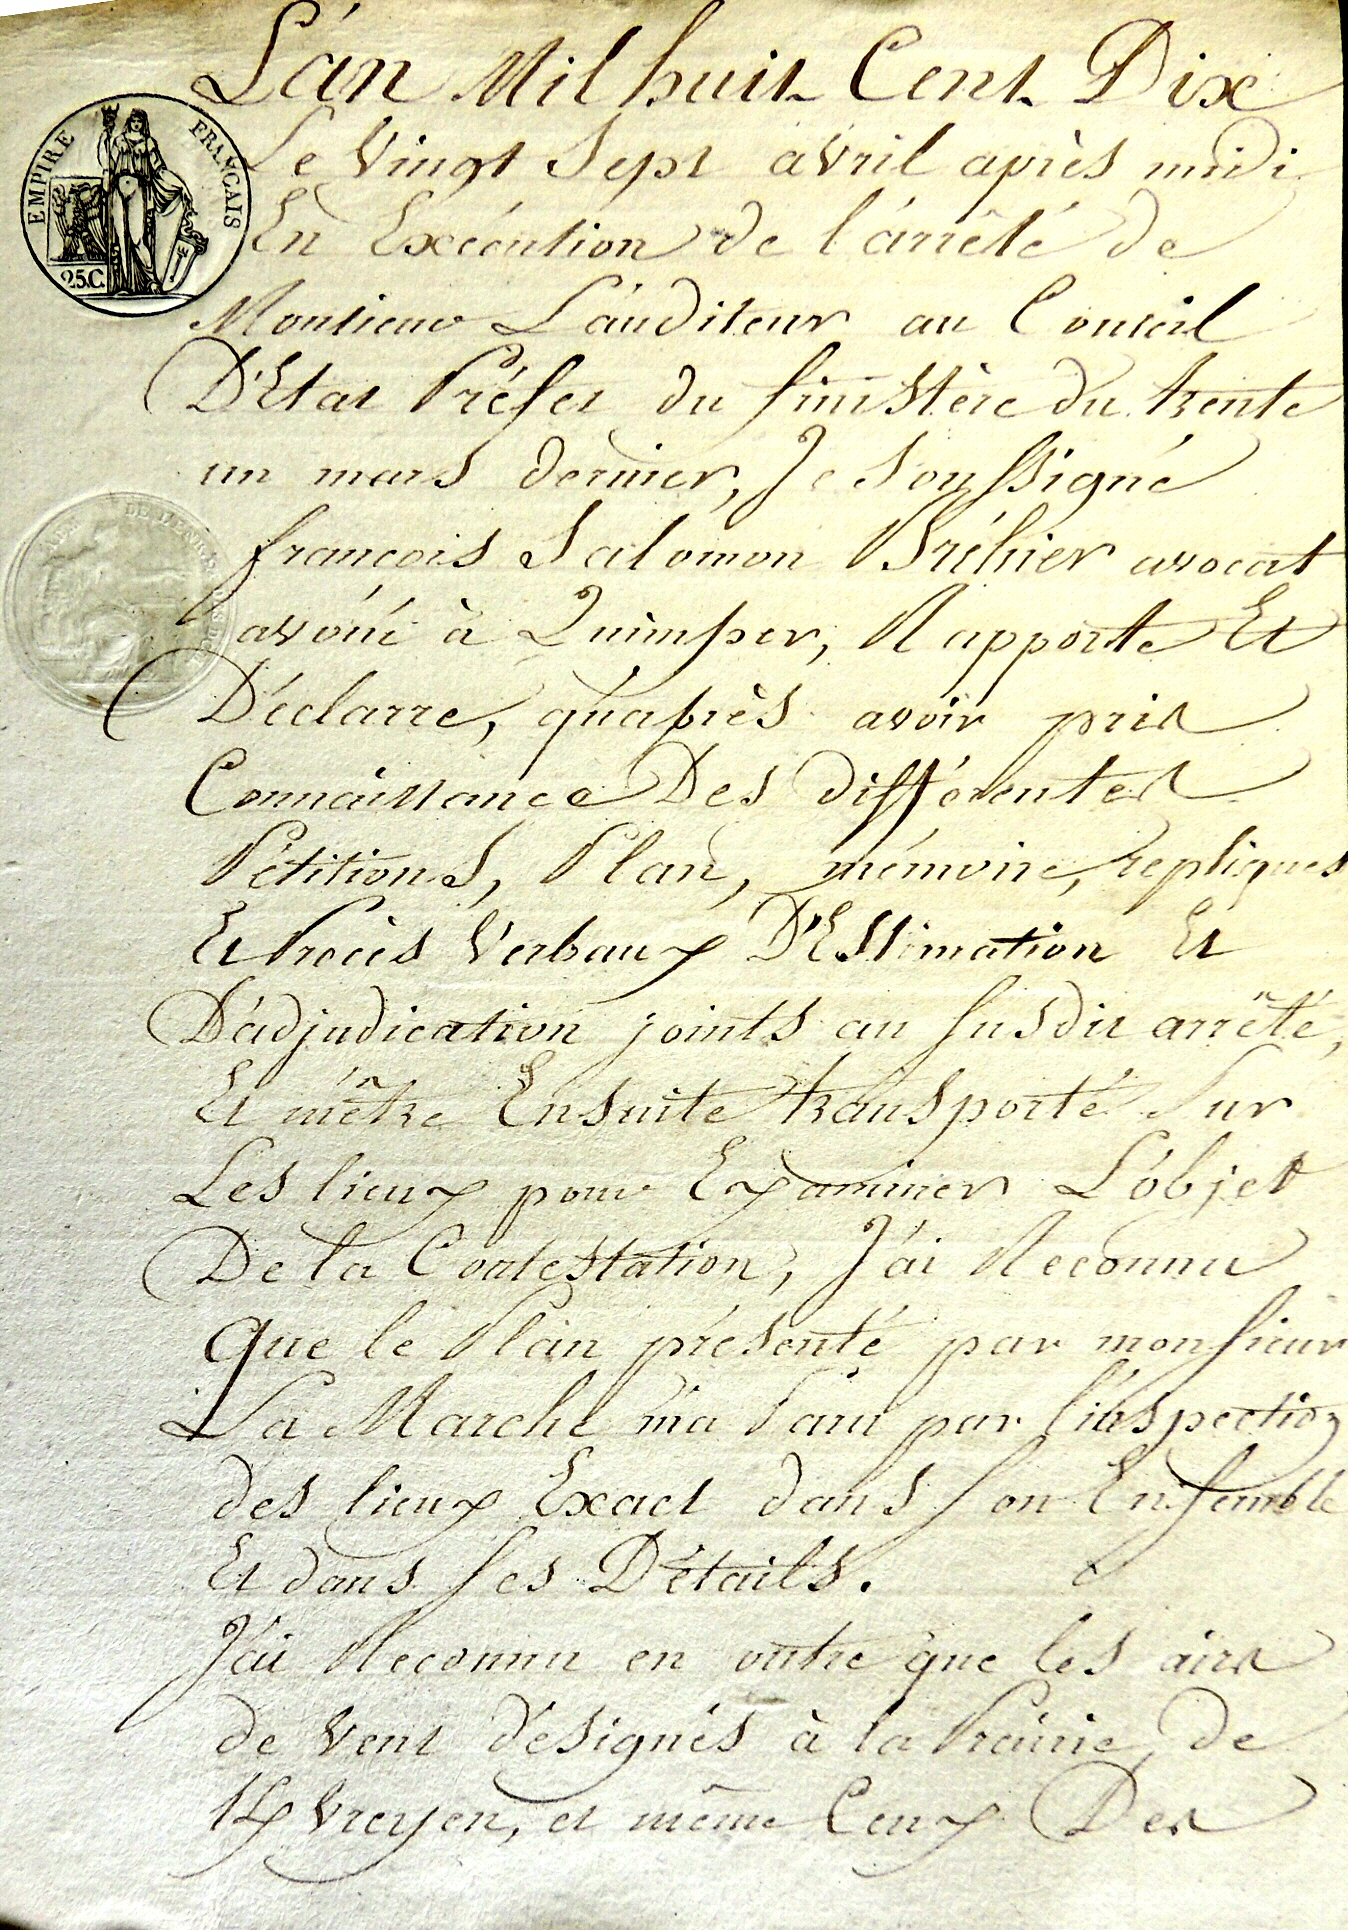 L'an Mil huit Cent Dix
EMPIRE FRANÇAIS
25.C.
Le Vingt Sept avril après midi
En Exécution de l'arrêté de
Monsieur L'auditeur au Conseil
D'Etat Préfet du finistère du trente
un mars dernier, Je Soussigné
françois Salomon Bréhier avocat
avoué à Quimper, Rapporte Et
Déclarre, qu'après avoir pris
Connaissance Des différentes
Pétitions, Plan, mémoire, repliques
Et Procès Verbaux D'Estimation Et
D'adjudication joints au susdit arrêté,
Et m'être Ensuite transporté Sur
Les lieux pour Examiner L'objet
De la Contestation, J'ai Reconnu
que le Plan présenté par monsieur
La Marche m'a Paru par l'inspection
des lieux Exact dans son Ensemble
Et dans ses Détails.
J'ai Reconnu en outre que les airs
de Vent désignés à la Prairie de
Vreyen, et même Ceux Des